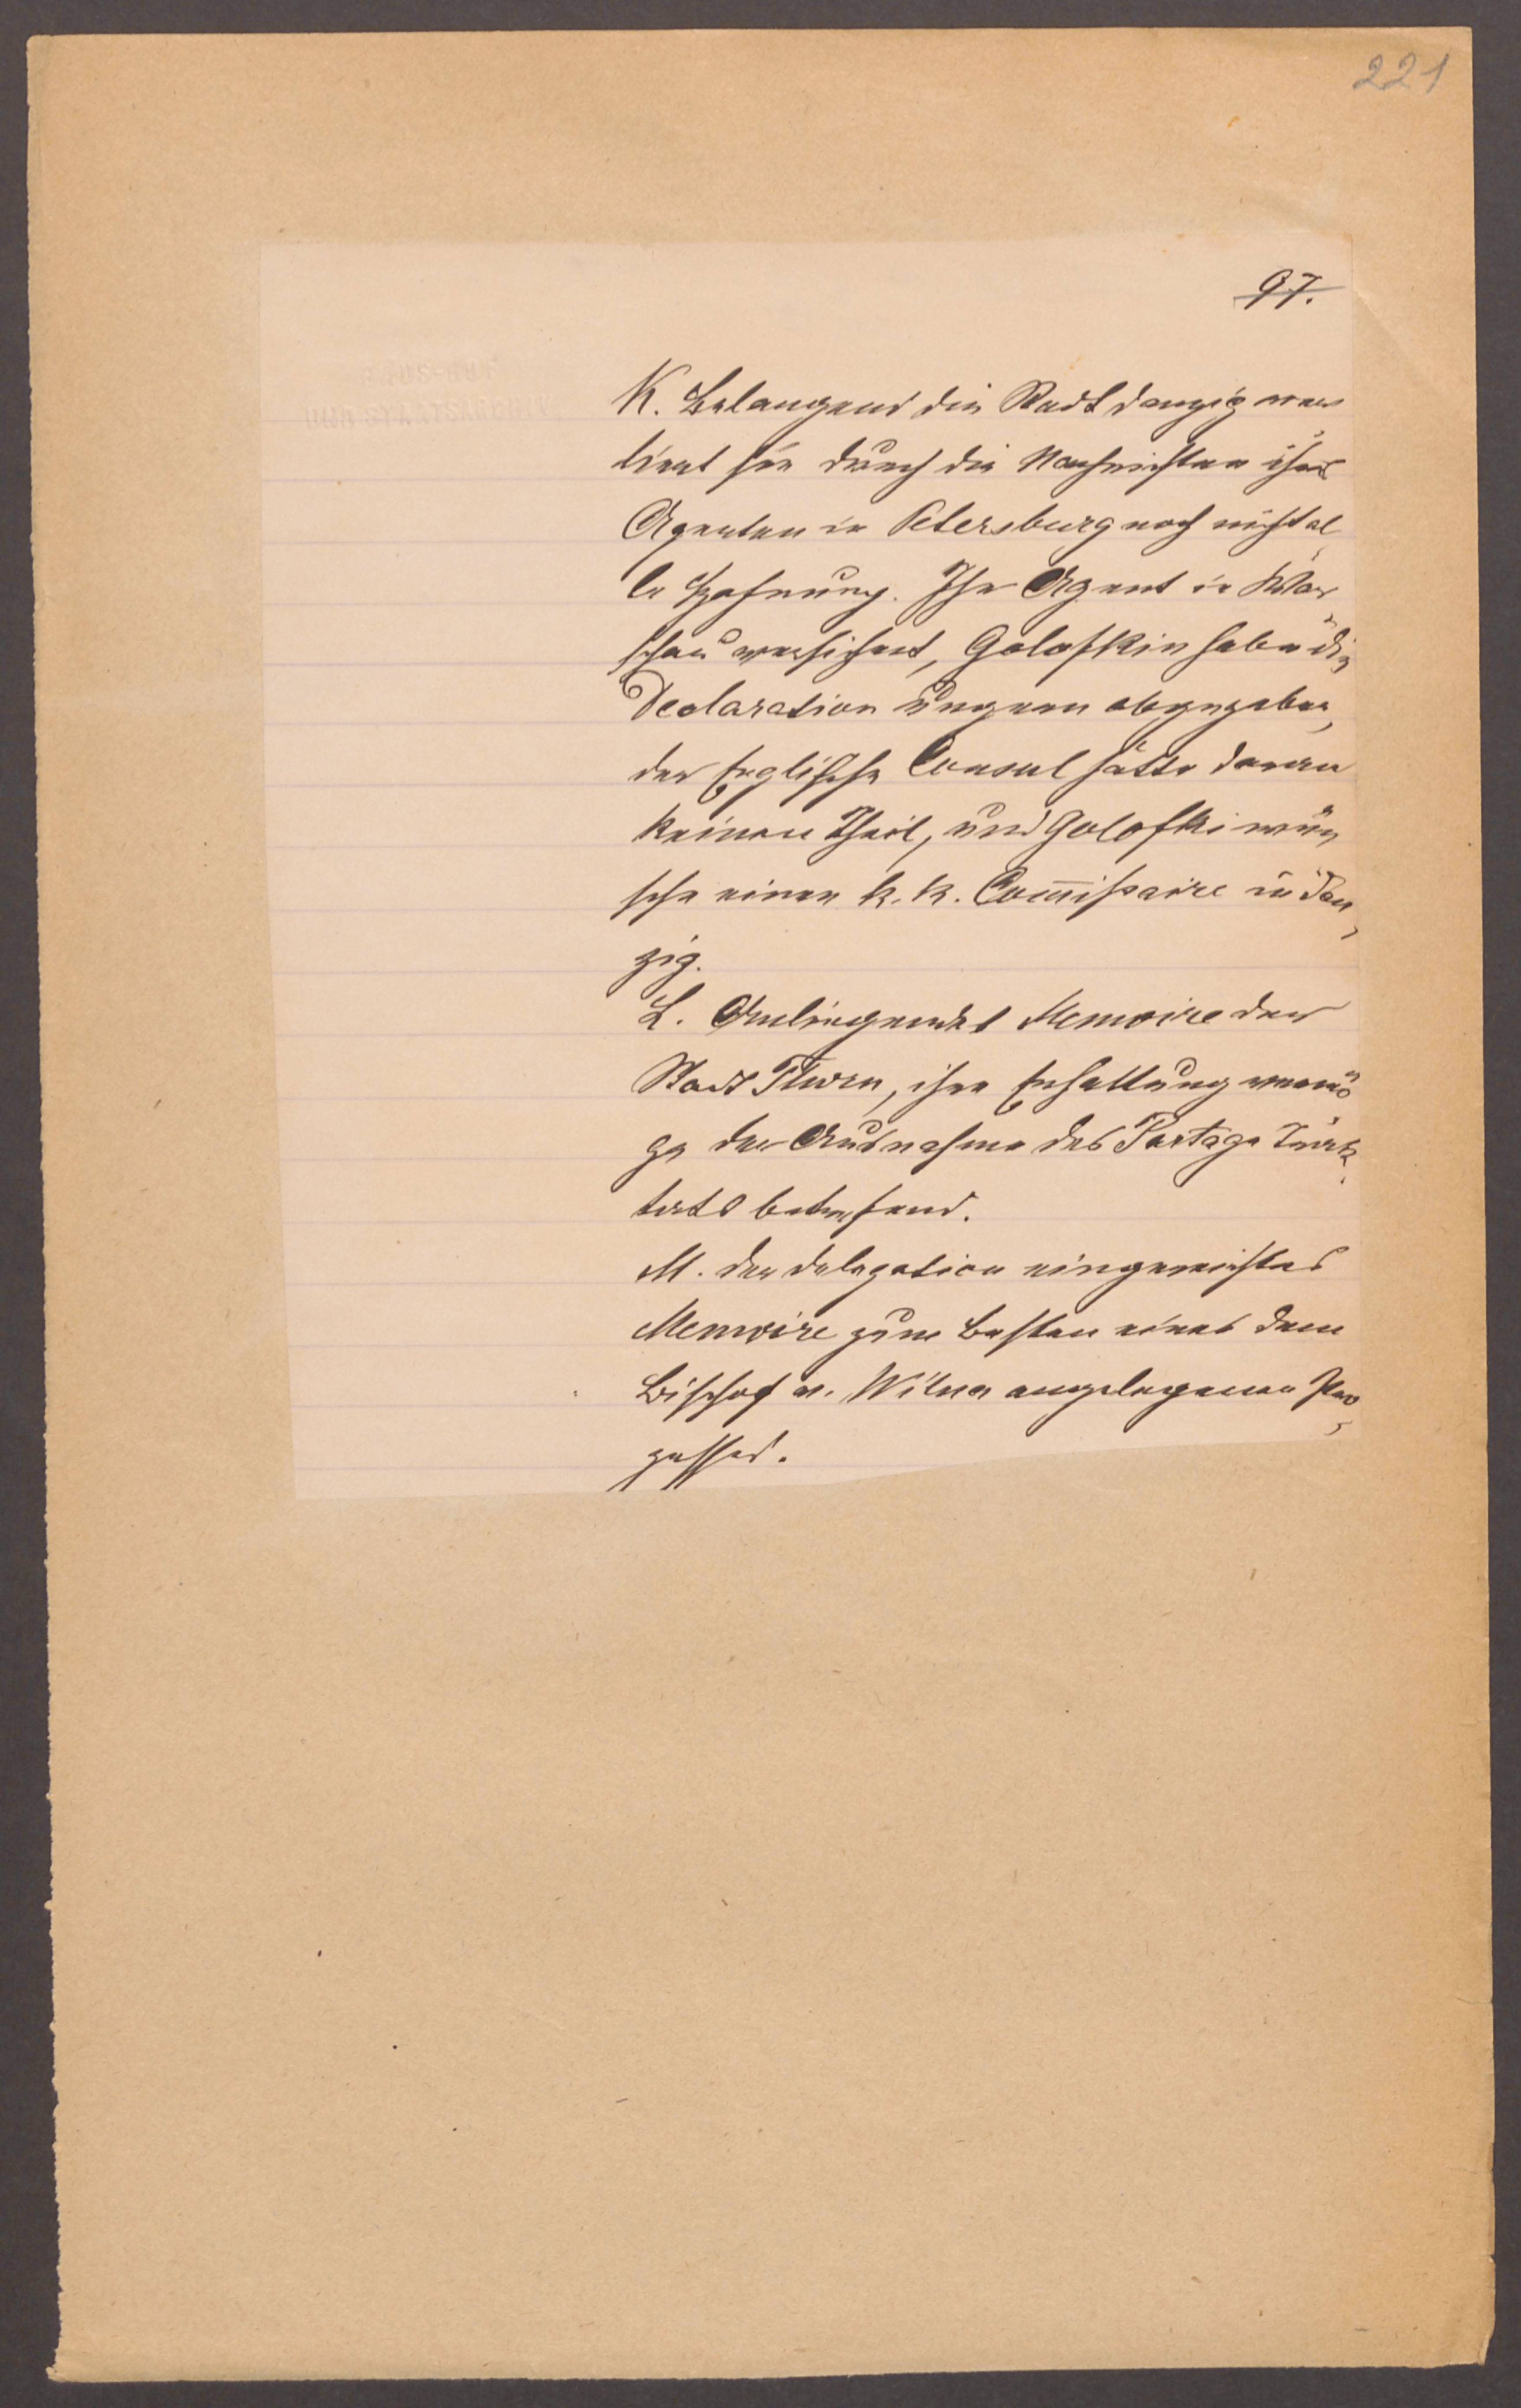 221
97.
K. Belangend die Stadt Danzig ver
lieret sie durch die Nachrichten ihres
Agenten in Petersburg noch nicht al
le Hofnung. Ihr Agent in War
schau versichert, Golofkin habe die
Declaration ungern abgegeben,
der Englische Consul hätte daran
keinen Theil, und Golofki wün
sche einen k. k. Commissaire in Dan
zig.
L. Anliegendes Memoire der
Stadt Thorn, ihre Erhaltung vermö
ge der Ausnahme des Partage Trak
tats betrefend.
M. Der Delegation eingereichtes
Memoire zum Besten eines dem
Bischof v. Wilna angelegenen Pro
zesses.
HAUS-HOF
UND STAATSARCHIV